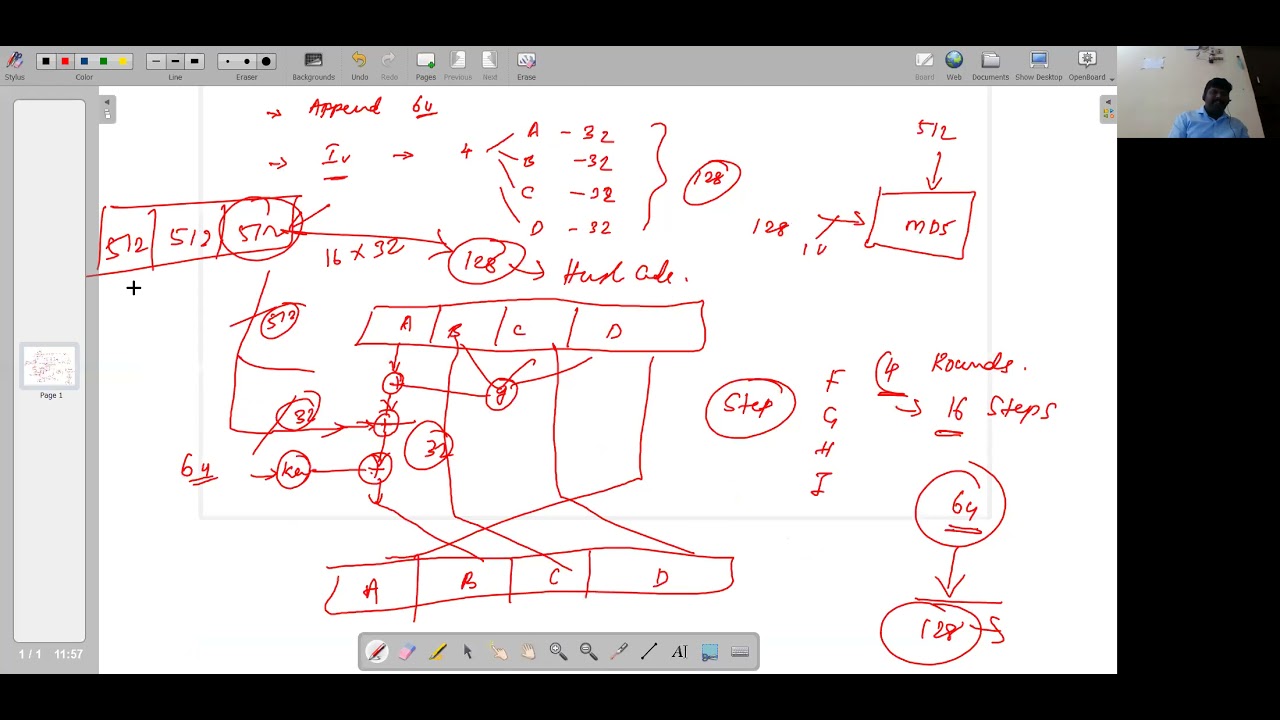 Stylus
Color
Line
Eraser
Backgrounds
Undo
Redo
Pages
Previous
Next
Erase
Board
Web
Documents
Show Desktop
OpenBoard
→ Append 64
→ Iv → 4
A - 32
B - 32
C - 32
D - 32
128
512
128
IV
MD5
512 512 512
16 x 32
128 → Hash Code.
512
A B C D
+
g
32
+
32
64 → Key +
Step
F
G
H
I
4 Rounds.
→ 16 Steps
64
128
A B C D
Page 1
1 / 1 11:57